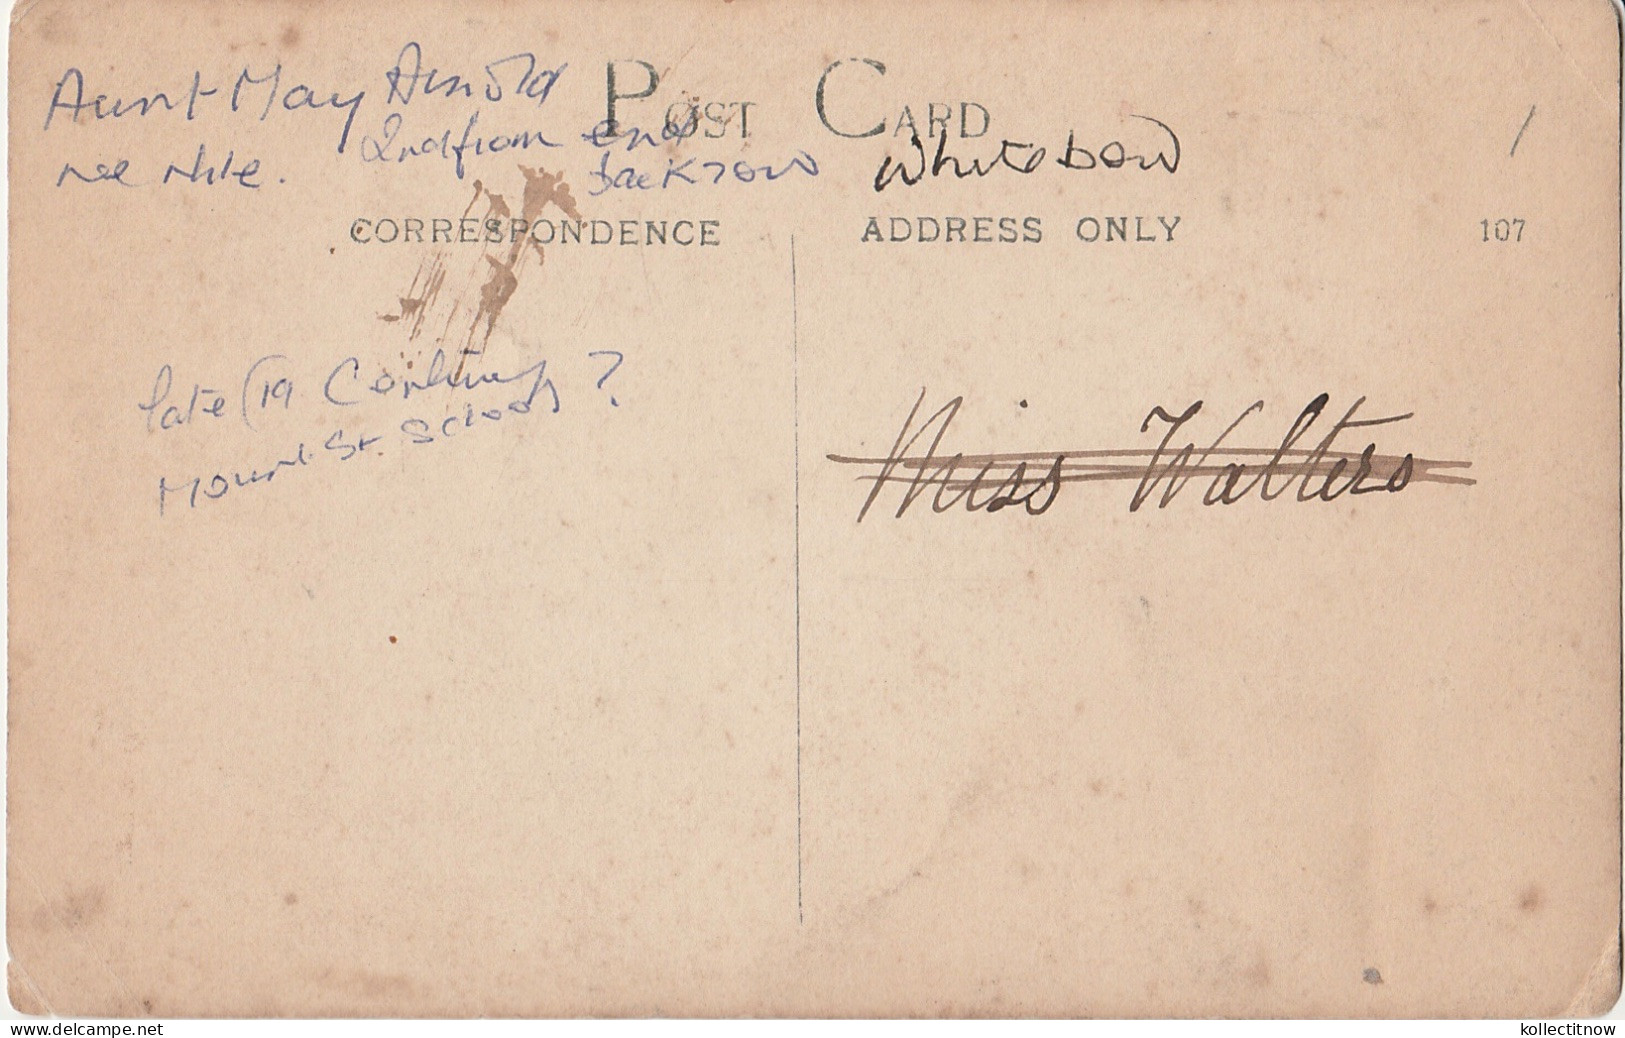 Aunt May Arnold
POST CARD
2nd from end
nee White.
back row
white bow
CORRESPONDENCE
ADDRESS ONLY
107
late 19 Century ?
Mount St. School
Miss Walters
www.delcampe.net
kollectitnow